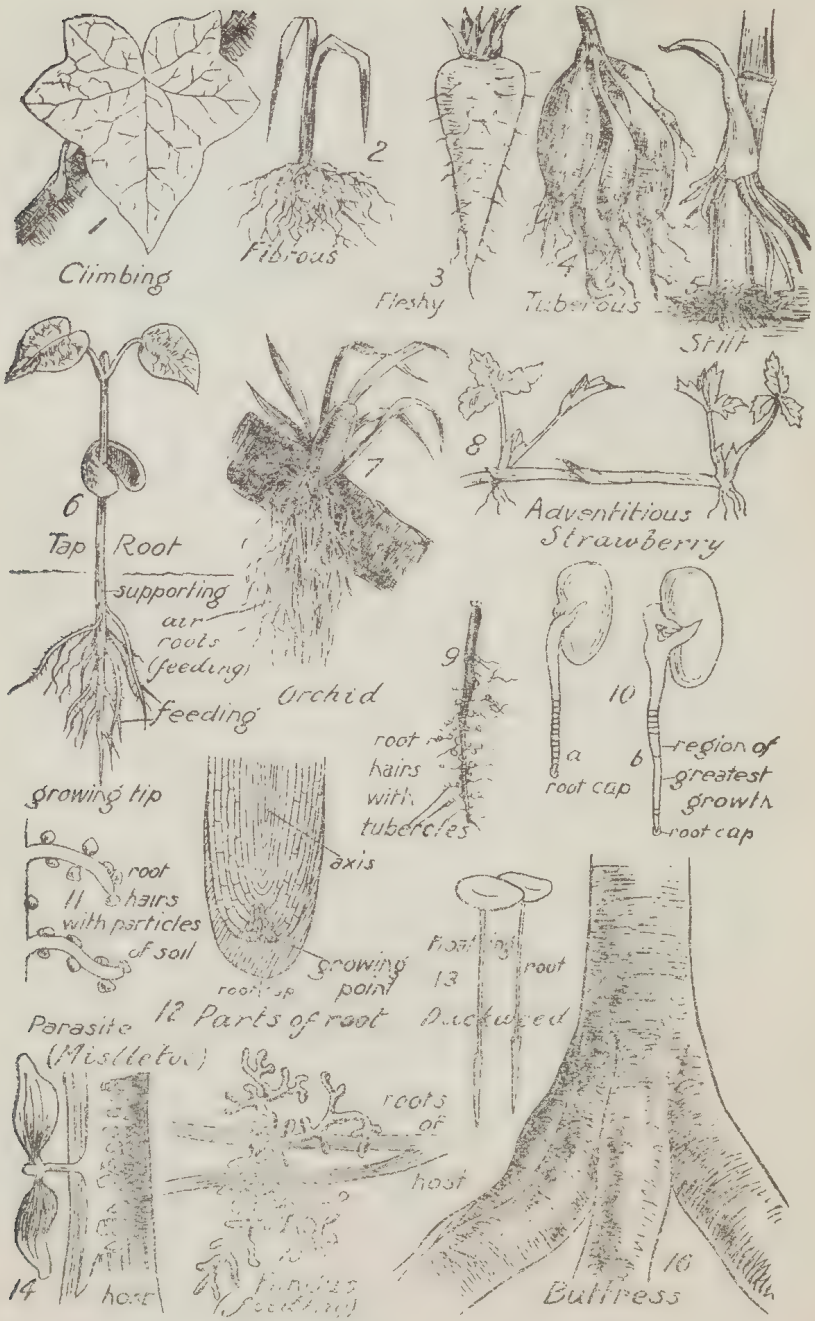 Climbing
2
Fibrous
3
Fleshy
4
Tuberous
5
Stilt
6
Tap Root
supporting
feeding
growing tip
7
air
roots
(feeding)
Orchid
8
Adventitious
Strawberry
9
root
hairs
with
tubercles
10
a
root cap
b
region of
greatest
growth
root cap
11
root
hairs
with particles
of soil
axis
growing
point
root cap
12 Parts of root
Floating
root
13
Duckweed
Parasite
(Mistletoe)
14
host
roots
of
host
Fungus
16
Buttress